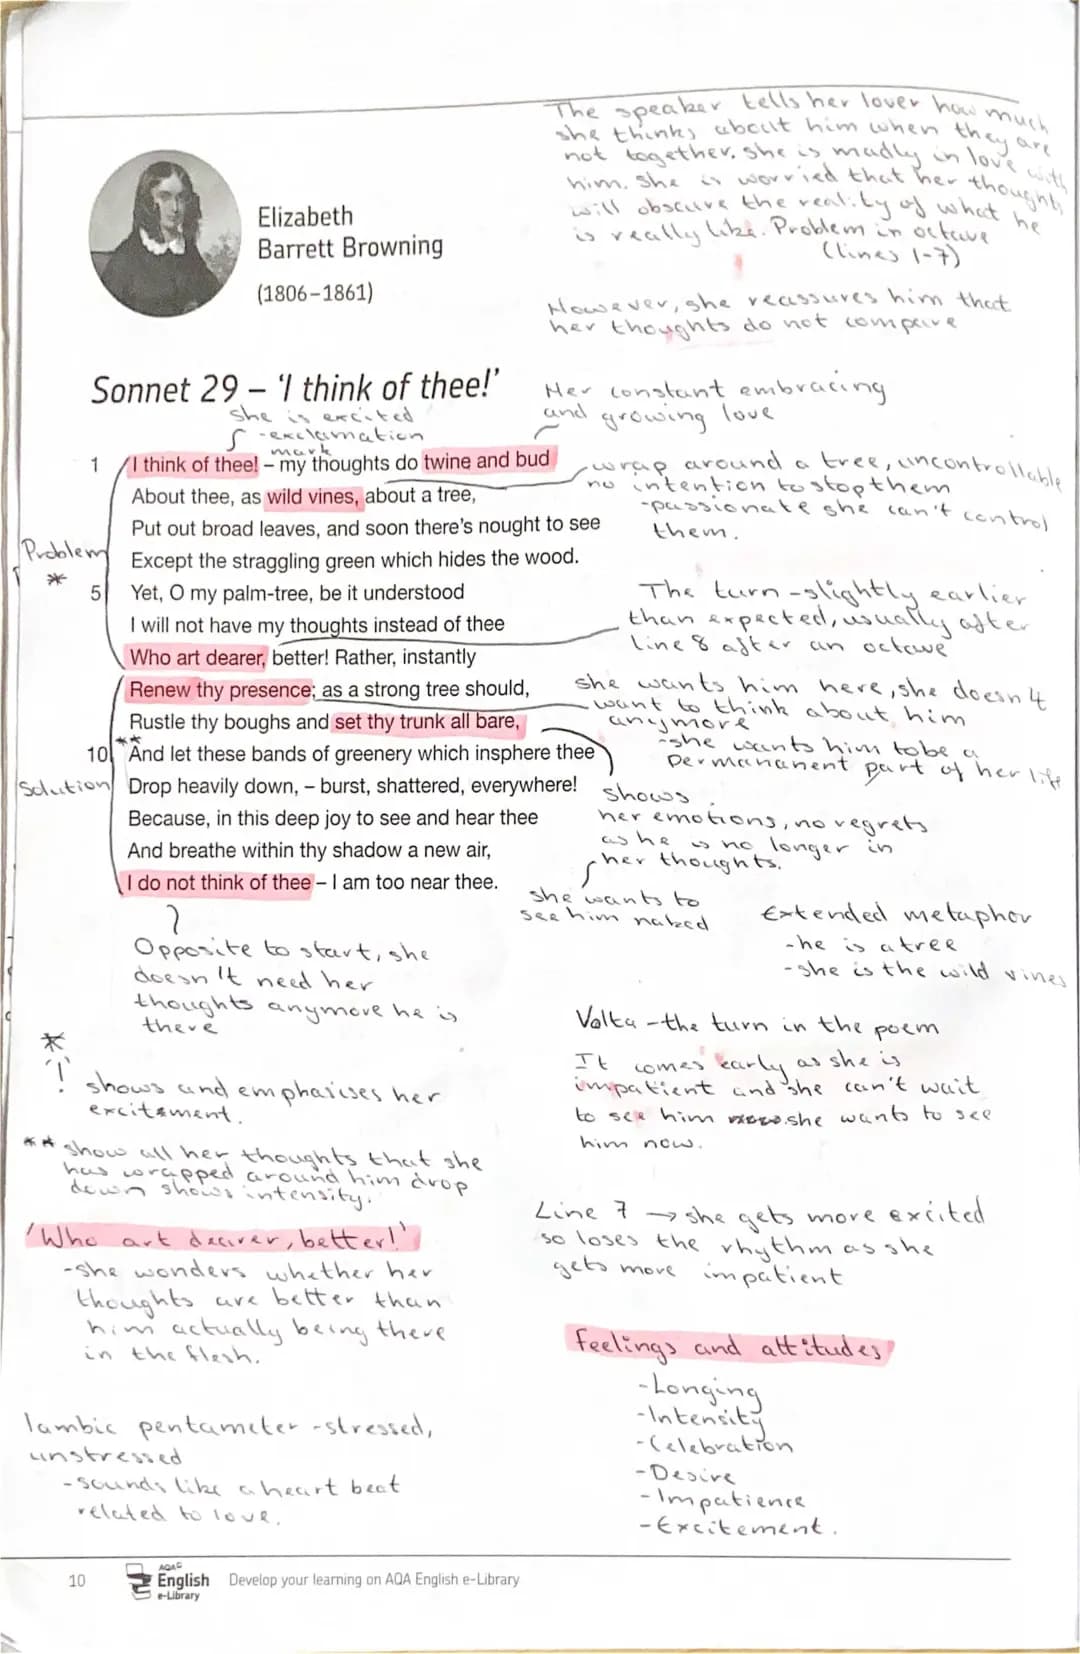 The speaker tells her lover how much
she thinks about him when they are
not together. she is madly in love with
him. She is worried that her thoughts
will obscure the reality of what he
is really like. Problem in octave
(lines 1-7)
Elizabeth
Barrett Browning
(1806–1861)
However, she reassures him that
her thoughts do not compare
Sonnet 29 – ‘I think of thee!’
Her constant embracing
and growing love
She is excited
-exclamation
mark
1 I think of thee! – my thoughts do twine and bud
About thee, as wild vines, about a tree,
Put out broad leaves, and soon there's nought to see
Except the straggling green which hides the wood.
5 Yet, O my palm-tree, be it understood
I will not have my thoughts instead of thee
Who art dearer, better! Rather, instantly
Renew thy presence; as a strong tree should,
Rustle thy boughs and set thy trunk all bare,
10 ** And let these bands of greenery which insphere thee
Drop heavily down, – burst, shattered, everywhere!
Because, in this deep joy to see and hear thee
And breathe within thy shadow a new air,
I do not think of thee – I am too near thee.
Problem
*
Solution
wrap around a tree, uncontrollable
no intention to stop them
-passionate she can't control
them.
The turn -slightly earlier
than expected, usually after
line 8 after an octave
she wants him here, she doesn't
want to think about him
anymore
-she wants him to be a
permananent part of her life
shows
her emotions, no regrets
as he is no longer in
her thoughts.
she wants to
see him naked
Extended metaphor
-he is a tree
-she is the wild vines
Opposite to start, she
doesn't need her
thoughts anymore he is
there
Volta -the turn in the poem
It comes early as she is
impatient and she can't wait
to see him now. she wants to see
him now.
*
'!' shows and emphasises her
excitement.
** show all her thoughts that she
has wrapped around him drop
down shows intensity.
Line 7 → she gets more excited
so loses the rhythm as she
gets more impatient
'Who art dearer, better!'
-she wonders whether her
thoughts are better than
him actually being there
in the flesh.
feelings and attitudes
-Longing
-Intensity
-Celebration
-Desire
-Impatience
-Excitement.
Iambic pentameter -stressed,
unstressed
-sounds like a heart beat
related to love.
10
AQA
English
e-Library
Develop your learning on AQA English e-Library